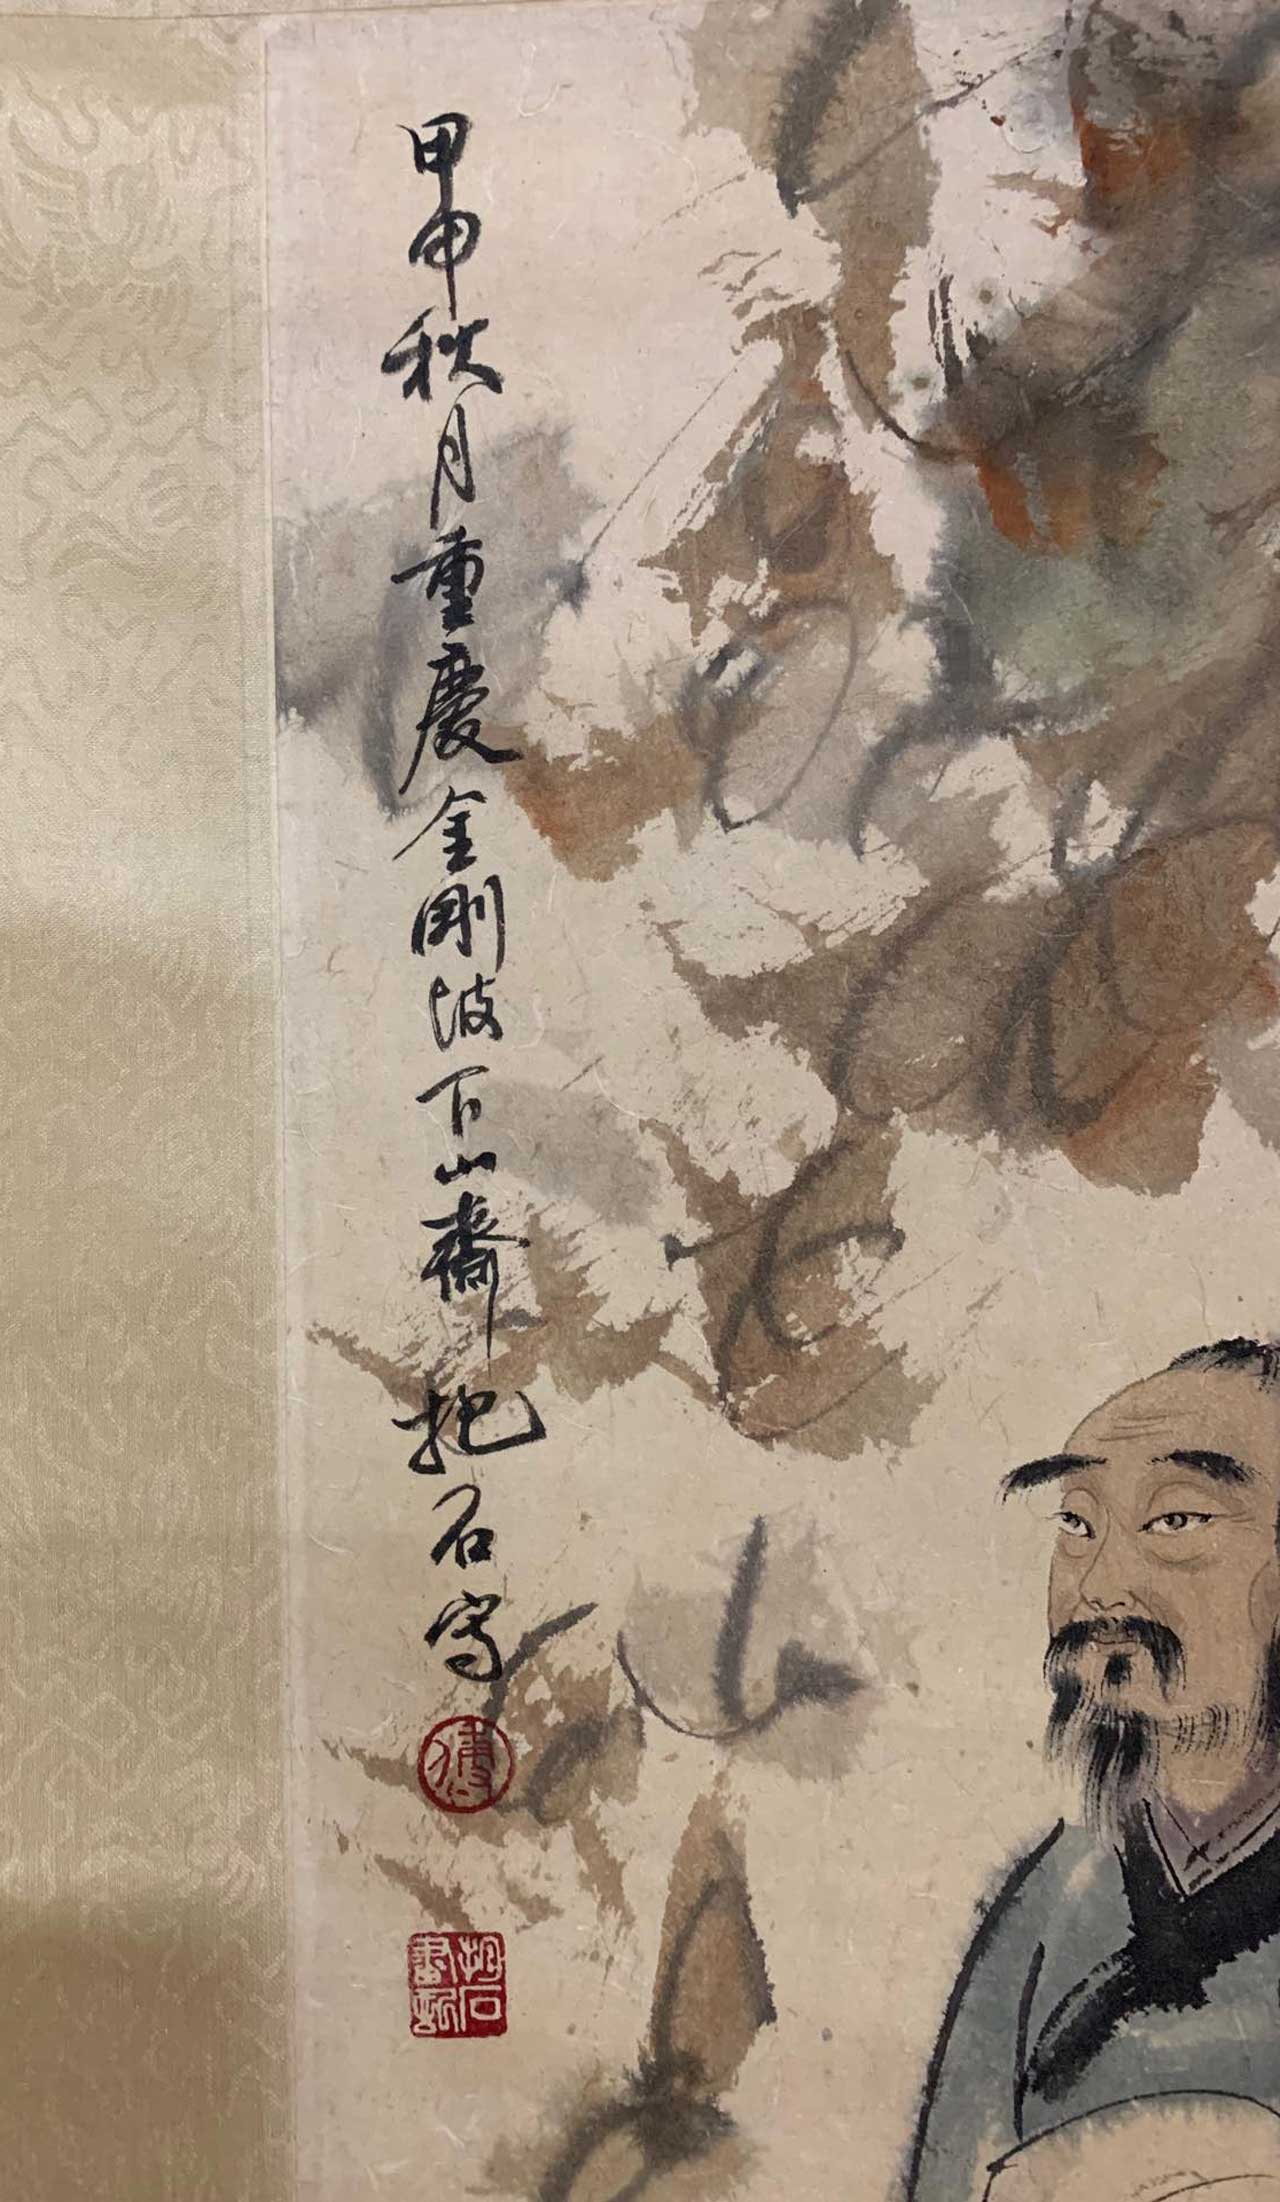 甲申秋月重慶金剛坡下山齋抱石寫
傅
抱石
畫記